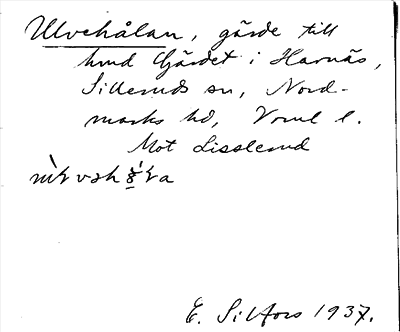 Ulvehålan, gärde till
hmd Gärdet i Harnäs,
Silleruds sn, Nord-
marks hd, Vrml l.
Mot Lisslerud
E. Silfors 1937.